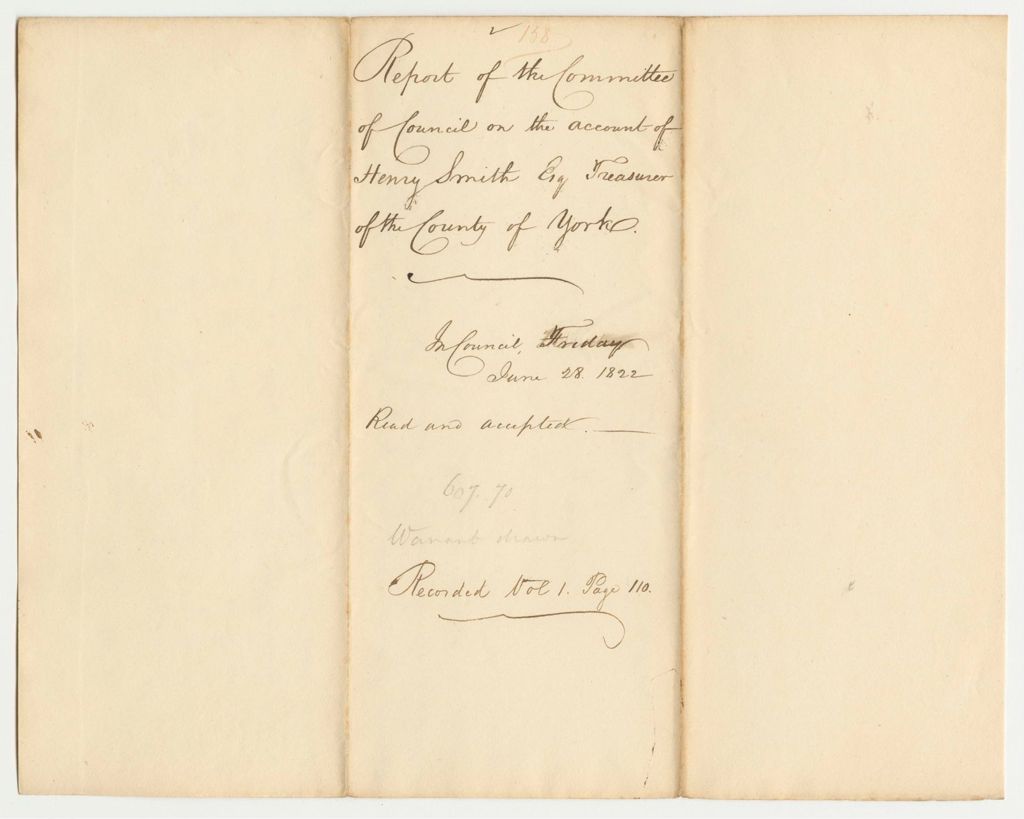 158
Report of the Committee
of Council on the account of
Henry Smith Esq Treasurer
of the County of York.
In Council, Friday
June 28. 1822
Read and accepted.
607.70
Warrant drawn
Recorded Vol 1. Page 110.